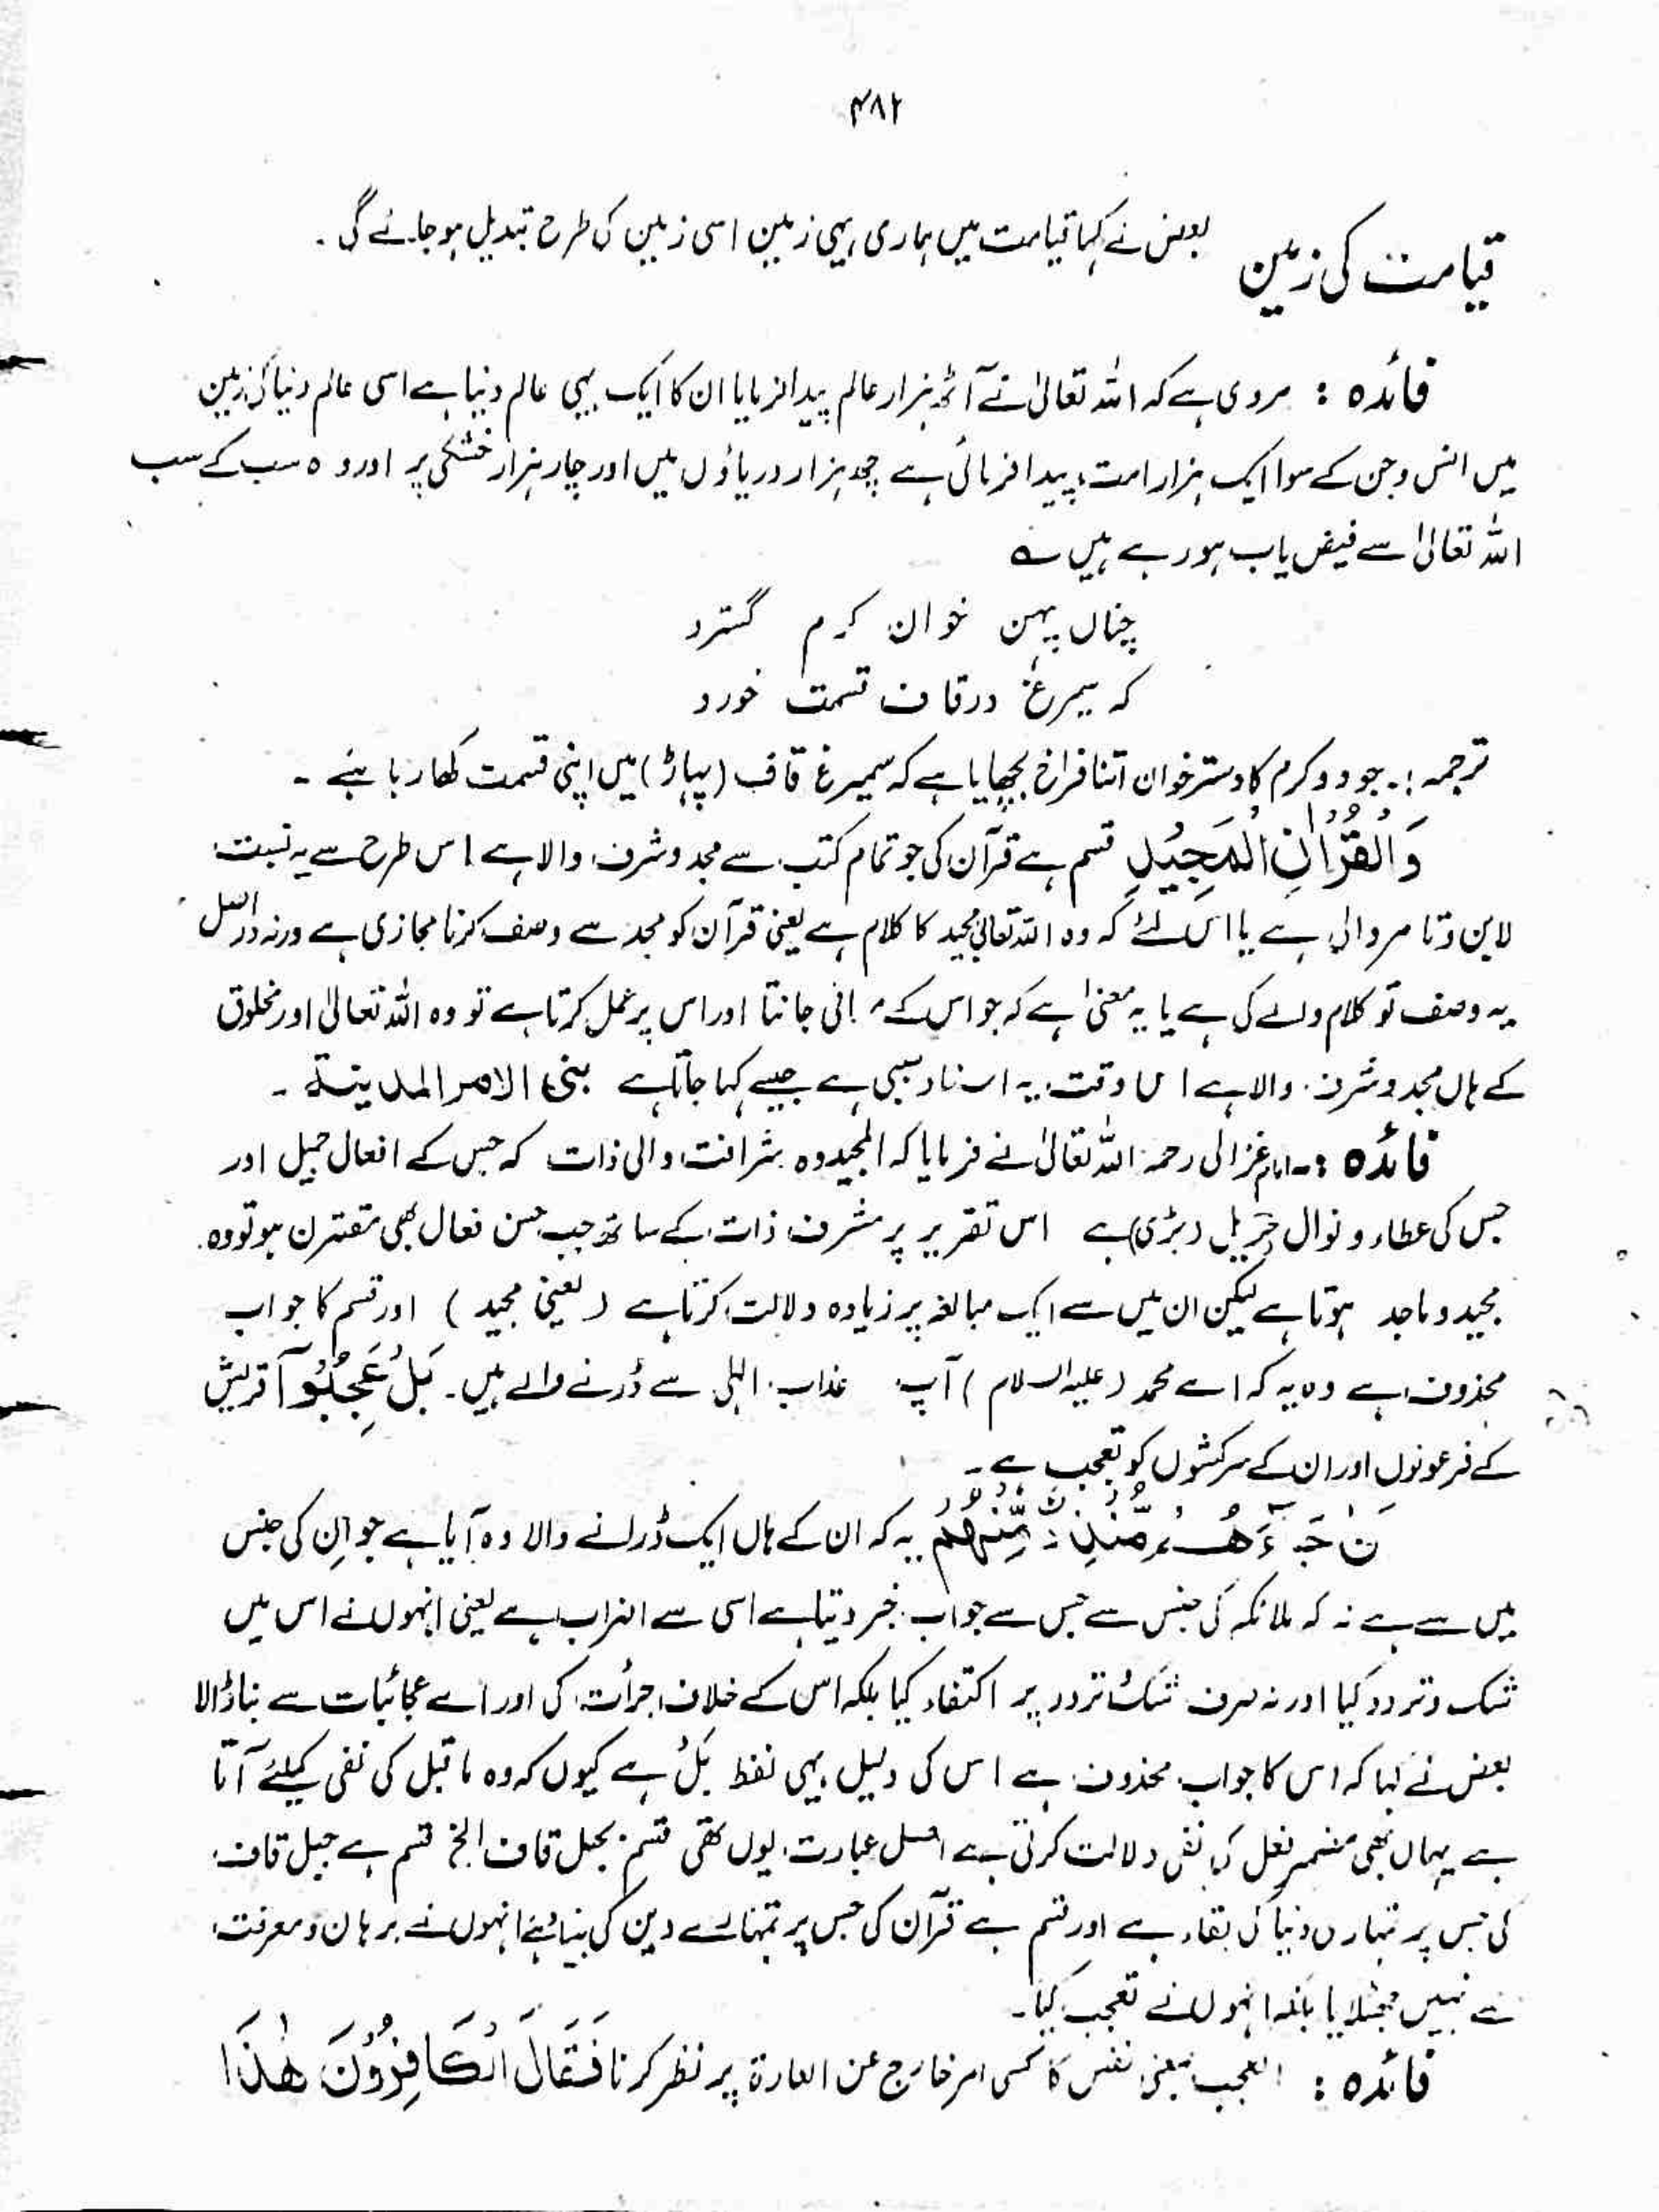 ۴۸۲
قیامت کی زمین بعض نے کہا قیامت میں ہماری یہی زمین اسی زمین کی طرح تبدیل ہو جائے گی ۔
فائدہ : مروی ہے کہ اللہ تعالیٰ نے آٹھ ہزار عالم پیدا فرمایا ان کا ایک یہی عالم دنیا ہے اسی عالم دنیا کی زمین
میں انس و جن کے سوا ایک ہزار امت پیدا فرمائی ہے چھ ہزار دریاؤں میں اور چار ہزار خشکی پر اور وہ سب کے سب
اللہ تعالیٰ سے فیض یاب ہو رہے ہیں ؎
چناں پہن خوان کرم گسترد
کہ سیمرغ در قاف قسمت خورد
ترجمہ :۔ جود و کرم کا دسترخوان اتنا فراخ بچھایا ہے کہ سیمرغ قاف (پہاڑ) میں اپنی قسمت کھا رہا ہے ۔
وَالْقُرْاٰنِ الْمَجِیْدِ قسم ہے قرآن کی جو تمام کتب سے مجد و شرف والا ہے اس طرح سے یہ نسبت
لابن و تامر والی ہے یا اس لئے کہ وہ اللہ تعالیٰ مجید کا کلام ہے یعنی قرآن کو مجد سے وصف کرنا مجازی ہے ورنہ دراصل
یہ وصف تو کلام والے کی ہے یا یہ معنیٰ ہے کہ جو اس کے معانی جانتا اور اس پر عمل کرتا ہے تو وہ اللہ تعالیٰ اور مخلوق
کے ہاں مجد و شرف والا ہے اس وقت یہ اسناد سببی ہے جیسے کہا جاتا ہے بنی الامیر المدینۃ ۔
فائدہ :۔ امام غزالی رحمہ اللہ تعالیٰ نے فرمایا کہ المجید وہ شرافت والی ذات کہ جس کے افعال جمیل اور
جس کی عطاء و نوال جزیل (بڑی) ہے اس تقریر پر شرف ذات کے ساتھ جب حسن فعال بھی مقترن ہو تو وہ
مجید و ماجد ہوتا ہے لیکن ان میں سے ایک مبالغہ پر زیادہ دلالت کرتا ہے (یعنی مجید) اور قسم کا جواب
محذوف ہے وہ یہ کہ اے محمد (علیہ السلام) آپ عذاب الٰہی سے ڈرنے والے ہیں ۔ بَلْ عَجِبُوْٓا قریش
کے فرعونوں اور ان کے سرکشوں کو تعجب ہے ۔
نْ جَآءَهُمْ مُّنْذِرٌ مِّنْهُمْ یہ کہ ان کے ہاں ایک ڈرانے والا وہ آیا ہے جو ان کی جنس
میں سے ہے نہ کہ ملائکہ کی جنس سے جس سے جواب خبر دیتا ہے اسی سے اضراب ہے یعنی انہوں نے اس میں
شک و تردد کیا اور نہ صرف شک و تردد پر اکتفاء کیا بلکہ اس کے خلاف جرأت کی اور اسے عجائبات سے بنا ڈالا
بعض نے کہا کہ اس کا جواب محذوف ہے اس کی دلیل یہی لفظ بَلْ ہے کیوں کہ وہ ماقبل کی نفی کیلئے آتا
ہے یہاں بھی مضمر فعل کی نفی دلالت کرتی ہے اصل عبارت یوں تھی قسم بجبل قاف الخ قسم ہے جبل قاف
کی جس پر تمہاری دنیا کی بقاء ہے اور قسم ہے قرآن کی جس پر تمہارے دین کی بنیاد ہے انہوں نے برہان و معرفت
سے نہیں جھٹلایا بلکہ انہوں نے تعجب کیا ۔
فائدہ : العجب بمعنی نفس کا کسی امر خارج عن العادۃ پر نظر کرنا فَقَالَ الْكَافِرُوْنَ هٰذَا